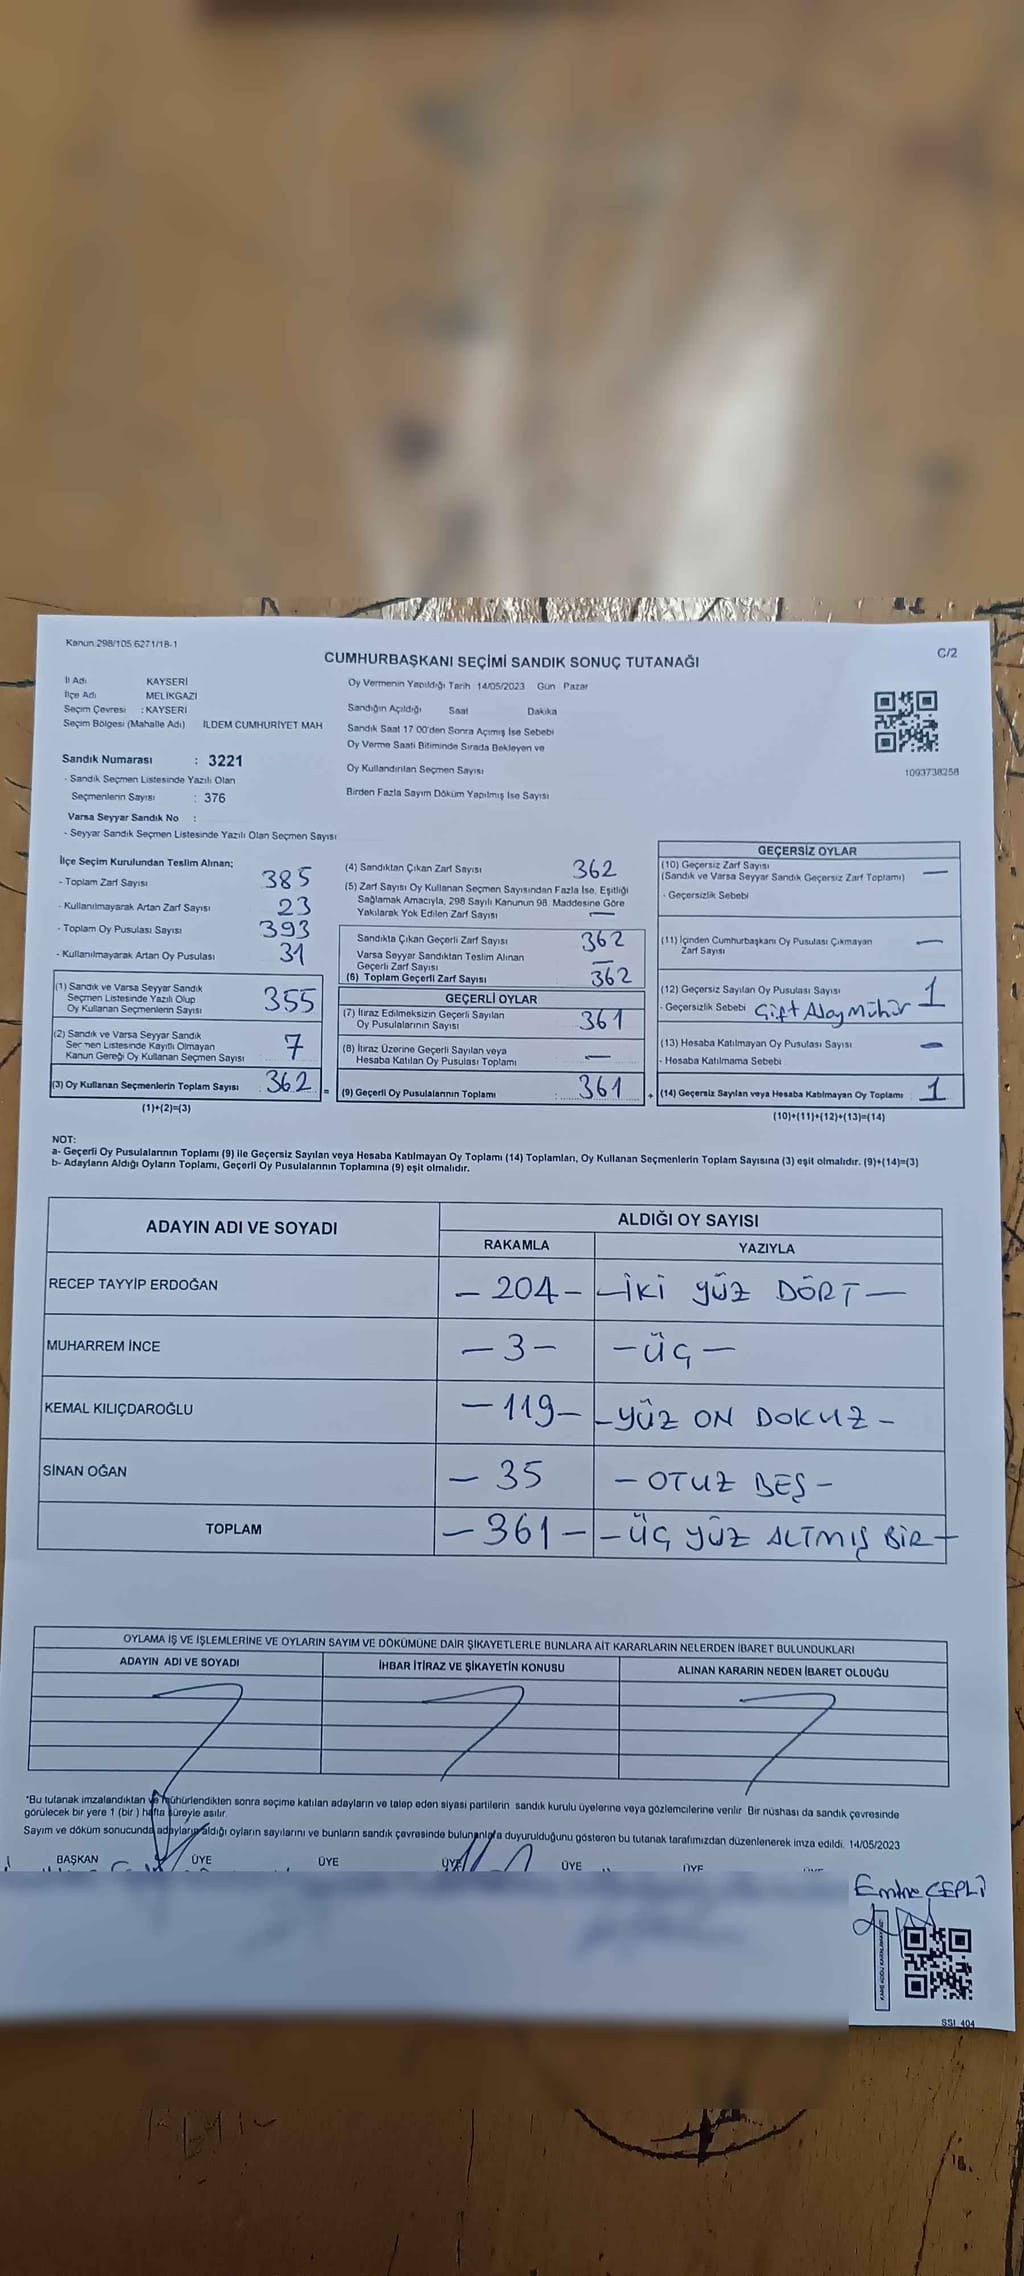 Kanun:298/105,6271/18-1
C/2
CUMHURBAŞKANI SEÇİMİ SANDIK SONUÇ TUTANAĞI
İl Adı KAYSERİ
İlçe Adı MELİKGAZİ
Seçim Çevresi : KAYSERİ
Seçim Bölgesi (Mahalle Adı) İLDEM CUMHURİYET MAH
Oy Vermenin Yapıldığı Tarih 14/05/2023 Gün Pazar
Sandığın Açıldığı Saat Dakika
Sandık Saat 17.00'den Sonra Açımış İse Sebebi
Oy Verme Saati Bitiminde Sırada Bekleyen ve
Oy Kullandırılan Seçmen Sayısı
Birden Fazla Sayım Döküm Yapılmış İse Sayısı
1093738258
Sandık Numarası : 3221
- Sandık Seçmen Listesinde Yazılı Olan
Seçmenlerin Sayısı : 376
Varsa Seyyar Sandık No :
- Seyyar Sandık Seçmen Listesinde Yazılı Olan Seçmen Sayısı
İlçe Seçim Kurulundan Teslim Alınan;
- Toplam Zarf Sayısı 385
- Kullanılmayarak Artan Zarf Sayısı 23
- Toplam Oy Pusulası Sayısı 393
- Kullanılmayarak Artan Oy Pusulası 31
(1) Sandık ve Varsa Seyyar Sandık
Seçmen Listesinde Yazılı Olup
Oy Kullanan Seçmenlerin Sayısı 355
(2) Sandık ve Varsa Seyyar Sandık
Seçmen Listesinde Kayıtlı Olmayan
Kanun Gereği Oy Kullanan Seçmen Sayısı 7
(3) Oy Kullanan Seçmenlerin Toplam Sayısı : 362 =
(1)+(2)=(3)
(4) Sandıktan Çıkan Zarf Sayısı 362
(5) Zarf Sayısı Oy Kullanan Seçmen Sayısından Fazla İse, Eşitliği
Sağlamak Amacıyla, 298 Sayılı Kanunun 98. Maddesine Göre
Yakılarak Yok Edilen Zarf Sayısı —
Sandıkta Çıkan Geçerli Zarf Sayısı 362
Varsa Seyyar Sandıktan Teslim Alınan
Geçerli Zarf Sayısı —
(6) Toplam Geçerli Zarf Sayısı 362
GEÇERLİ OYLAR
(7) İtiraz Edilmeksizin Geçerli Sayılan
Oy Pusulalarının Sayısı 361
(8) İtiraz Üzerine Geçerli Sayılan veya
Hesaba Katılan Oy Pusulası Toplamı —
(9) Geçerli Oy Pusulalarının Toplamı : 361 +
GEÇERSİZ OYLAR
(10) Geçersiz Zarf Sayısı
(Sandık ve Varsa Seyyar Sandık Geçersiz Zarf Toplamı) —
- Geçersizlik Sebebi
(11) İçinden Cumhurbaşkanı Oy Pusulası Çıkmayan
Zarf Sayısı —
(12) Geçersiz Sayılan Oy Pusulası Sayısı 1
- Geçersizlik Sebebi Çift Alay Mühür
(13) Hesaba Katılmayan Oy Pusulası Sayısı —
- Hesaba Katılmama Sebebi
(14) Geçersiz Sayılan veya Hesaba Katılmayan Oy Toplamı : 1
(10)+(11)+(12)+(13)=(14)
NOT:
a- Geçerli Oy Pusulalarının Toplamı (9) ile Geçersiz Sayılan veya Hesaba Katılmayan Oy Toplamı (14) Toplamları, Oy Kullanan Seçmenlerin Toplam Sayısına (3) eşit olmalıdır. (9)+(14)=(3)
b- Adayların Aldığı Oyların Toplamı, Geçerli Oy Pusulalarının Toplamına (9) eşit olmalıdır.
ADAYIN ADI VE SOYADI ALDIĞI OY SAYISI
RAKAMLA YAZIYLA
RECEP TAYYİP ERDOĞAN — 204 — — İKİ YÜZ DÖRT —
MUHARREM İNCE — 3 — — ÜÇ —
KEMAL KILIÇDAROĞLU — 119 — — YÜZ ON DOKUZ —
SİNAN OĞAN — 35 — OTUZ BEŞ —
TOPLAM — 361 — — ÜÇ YÜZ ALTMIŞ BİR —
OYLAMA İŞ VE İŞLEMLERİNE VE OYLARIN SAYIM VE DÖKÜMÜNE DAİR ŞİKAYETLERLE BUNLARA AİT KARARLARIN NELERDEN İBARET BULUNDUKLARI
ADAYIN ADI VE SOYADI İHBAR İTİRAZ VE ŞİKAYETİN KONUSU ALINAN KARARIN NEDEN İBARET OLDUĞU
*Bu tutanak imzalandıktan ve mühürlendikten sonra seçime katılan adayların ve talep eden siyasi partilerin sandık kurulu üyelerine veya gözlemcilerine verilir. Bir nüshası da sandık çevresinde
görülecek bir yere 1 (bir) hafta süreyle asılır.
Sayım ve döküm sonucunda adayların aldığı oyların sayılarını ve bunların sandık çevresinde bulunanlara duyurulduğunu gösteren bu tutanak tarafımızdan düzenlenerek imza edildi. 14/05/2023
BAŞKAN ÜYE ÜYE ÜYE ÜYE ÜYE
Emine ÇEPLİ
SSI_404